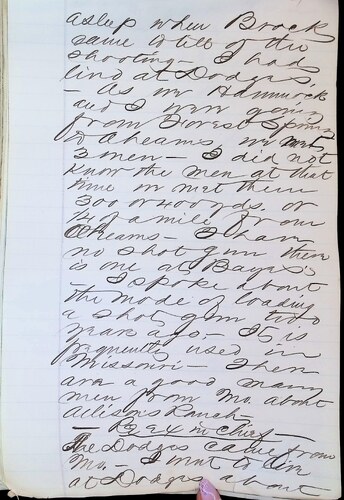 asleep when Brock
came to tell of the
shooting - I had
lived at Dodges,
- As Mr Hammock
and I were going
from Forest Spring
to Aheams, we met
3 men - I did not
know the men at that
time we met them
300 or 400 yds. or
1/4 of a mile from
Aheams - I have
no shot gun there
is one at Bayas.
- I spoke about
the mode of loading
a shot gun two
years ago, - It is
frequently used in
Missouri - There
are a good many
men from Mo. about
Allisons Ranch -
- Re-Ex in Chief -
The Dodges came from
Mo. - I went to live
at Dodges about